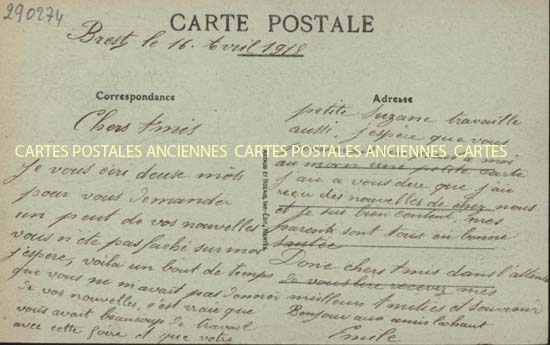 290274
CARTE POSTALE
Brest le 16 Avril 1918
Correspondance
Chers Amis
CARTES POSTALES ANCIENNES CARTES POSTALES ANCIENNES CARTES
Je vous écri deuse mots
pour vous demander
un peut de vos nouvelles
vous n'ete pas faché sur moi
j'espère, voila un bout de temps
que vous ne m'avait pas donner
de vos nouvelles, c'est vrai que
vous avait beaucoup de travail
avec cette foire et que votre
Adresse
petite Suzane travaille
aussi. j'espère que vous
moi
au moin une petite carte
j'ai a vous dire que j'ai
reçu des nouvelles de chez nous
et je suis bien content, mes
parents sont tous en bonne
santée
Donc chers Amis dans l'attente
de vous lire recevez mes
meilleurs Amitiés et souvenir
Bonjour aux amis
Emile